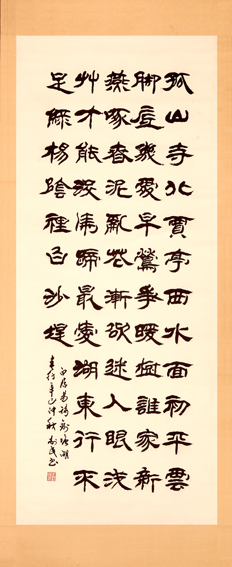 孤山寺北賈亭西水面初平雲
脚底幾處早鶯爭暖樹誰家新
燕啄春泥亂花漸欲迷人眼浅
艸才能没馬蹄最愛湖東行不
足綠楊陰裡白沙堤
白居易詩錢塘湖
春行辛巳仲秋書